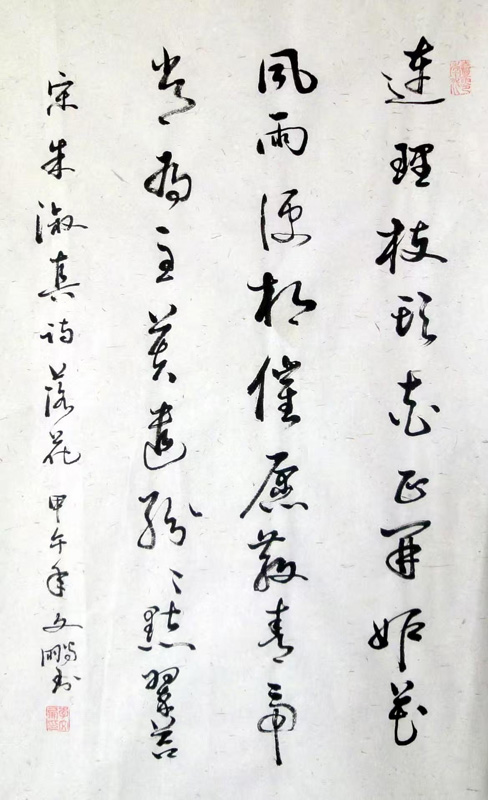 連理枝頭花正開妒花
風雨便相催願教青帝
常為主莫遣紛〻點翠苔
宋朱淑真詩落花 甲午年文鵬書